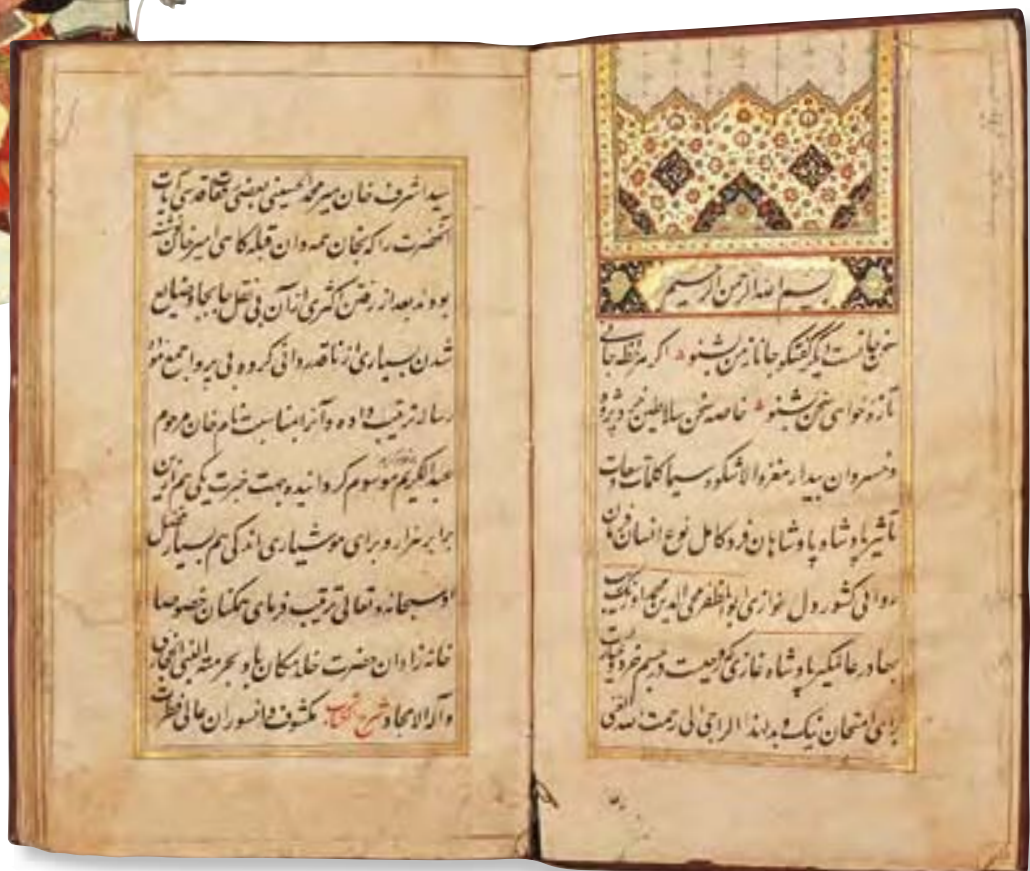 بسم الله الرحمن الرحیم
سخن جانست دیگر گفتگو جانا ز من بشنو اگر هر لحظه جانی
تازه خواهی سخن بشنو خاصه سخن سلاطین
و خسروان بیدار مغز والا شکوه سیما کلمات
تاثیر پادشاه پادشاهان فرد کامل نوع انسان
روائی کشور دل نوازی ابوالمظفر محی الدین محمد اورنگ زیب
بهادر عالمگیر پادشاه غازی که
برای امتحان نیک و بد اند الراجی الی رحمت الله الغنی
سید اشرف خان میر محمد حسینی بعضی
آنحضرت را که بخان همدوان قبله گاهی امیر خان
بودند بعد از رفتن اکثری از آن بی نقل بایجاد ضیایع
شدن بسیاری از ناقدردانی گروه بی پروا جمع نموده
رساله ترتیب داده و آنرا بمناسبت نام خان مرحوم
عبدالکریم موسوم گردانیده جهت خبرت یکی هم ازین
برابر هزار و برای هوشیاری اندکی هم بسیار
او سبحانه و تعالی ترتیب فرمای همگنان خصوصا
خانه زادان حضرت خلد مکان باد بحرمته النبی
و آله الامجاد شرح کتاب مکشوف دانشوران عالی فطرت